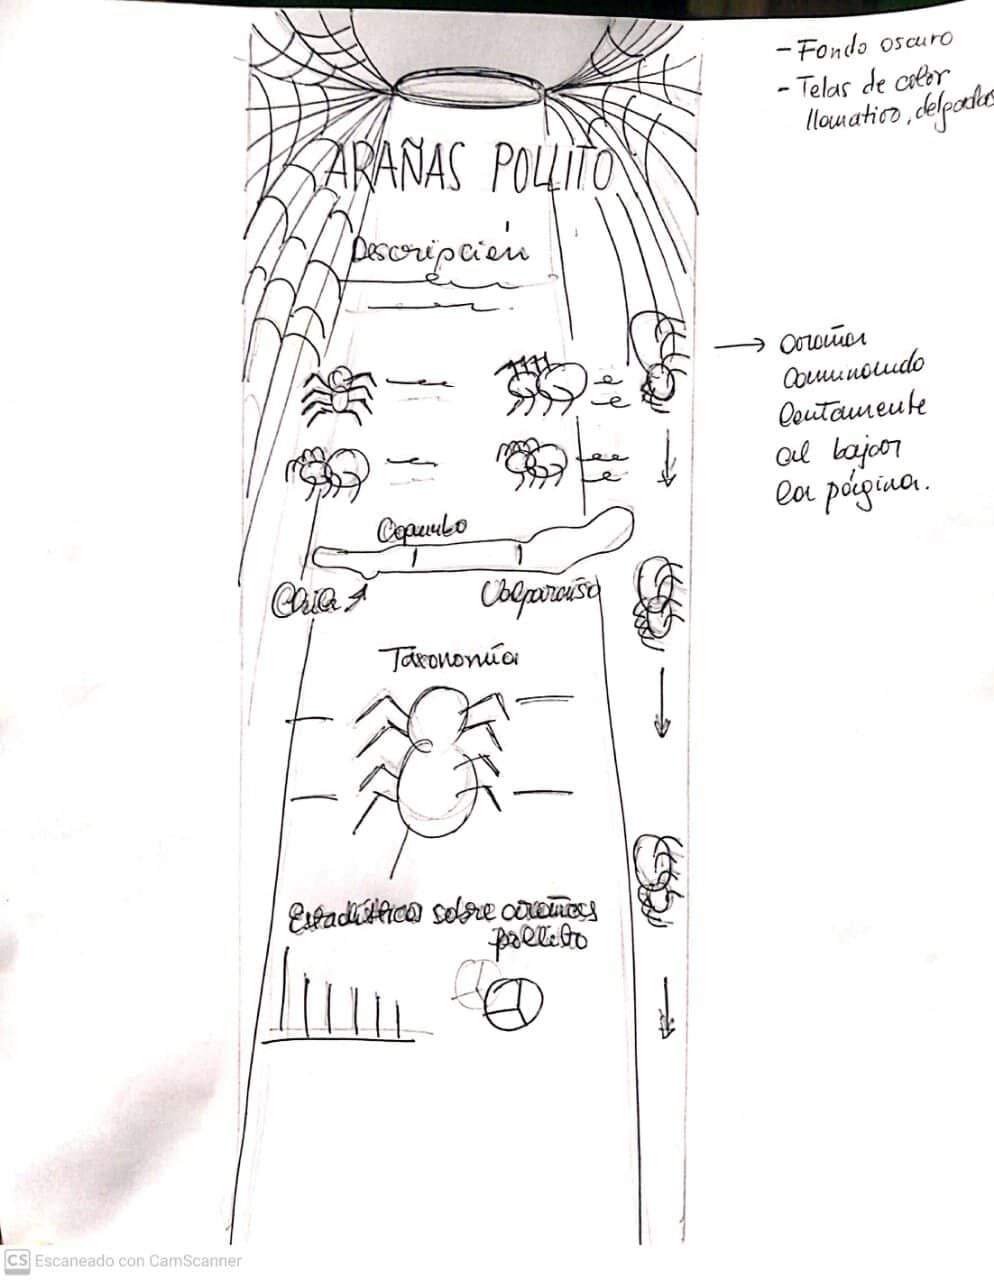 - Fondo oscuro
- Telas de color
llamativo, delgadas
ARAÑAS POLLITO
Descripción
arañas
caminando
lentamente
al bajar
la página.
Coquimbo
Chile
Valparaíso
Taxonomía
Estadísticas sobre arañas
pollito
CS Escaneado con CamScanner